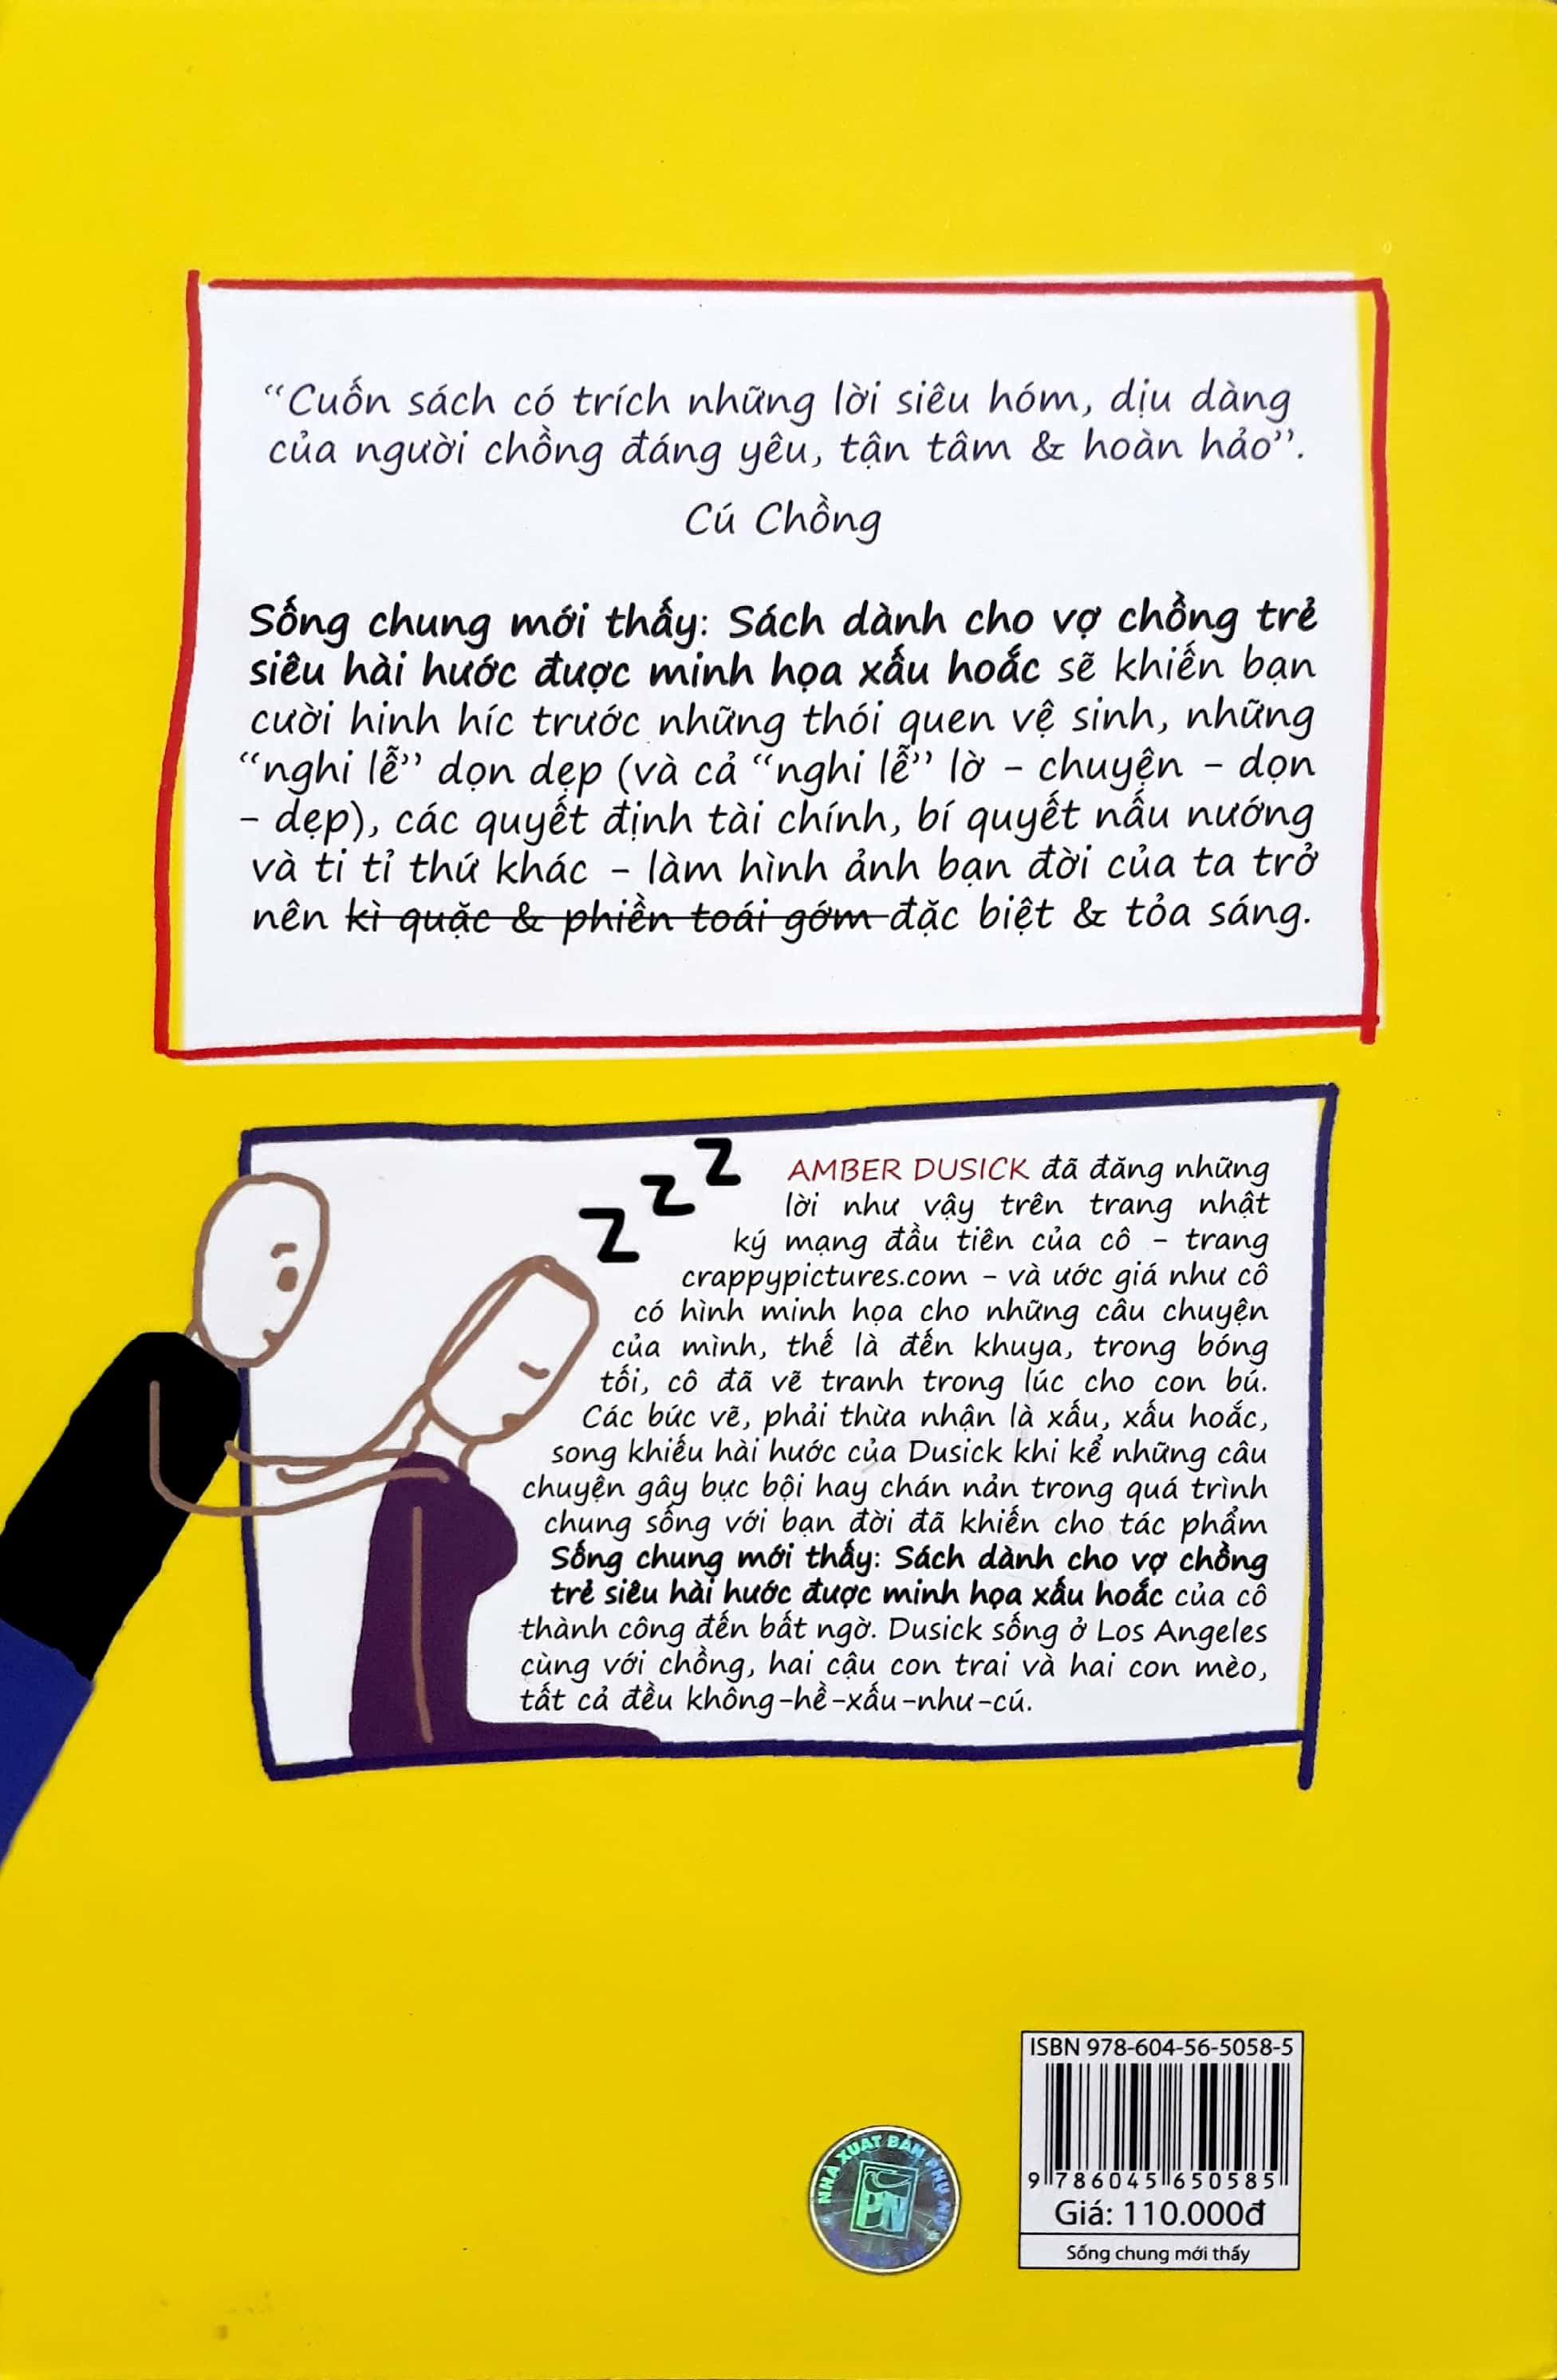 “Cuốn sách có trích những lời siêu hóm, dịu dàng
của người chồng đáng yêu, tận tâm & hoàn hảo”.
Cú Chồng
Sống chung mới thấy: Sách dành cho vợ chồng trẻ
siêu hài hước được minh họa xấu hoắc sẽ khiến bạn
cười hinh híc trước những thói quen vệ sinh, những
“nghi lễ” dọn dẹp (và cả “nghi lễ” lờ - chuyện - dọn
- dẹp), các quyết định tài chính, bí quyết nấu nướng
và ti tỉ thứ khác - làm hình ảnh bạn đời của ta trở
nên kì quặc & phiền toái gớm đặc biệt & tỏa sáng.
z z z
AMBER DUSICK đã đăng những
lời như vậy trên trang nhật
ký mạng đầu tiên của cô - trang
crappypictures.com - và ước giá như cô
có hình minh họa cho những câu chuyện
của mình, thế là đến khuya, trong bóng
tối, cô đã vẽ tranh trong lúc cho con bú.
Các bức vẽ, phải thừa nhận là xấu, xấu hoắc,
song khiếu hài hước của Dusick khi kể những câu
chuyện gây bực bội hay chán nản trong quá trình
chung sống với bạn đời đã khiến cho tác phẩm
Sống chung mới thấy: Sách dành cho vợ chồng
trẻ siêu hài hước được minh họa xấu hoắc của cô
thành công đến bất ngờ. Dusick sống ở Los Angeles
cùng với chồng, hai cậu con trai và hai con mèo,
tất cả đều không-hề-xấu-như-cú.
ISBN 978-604-56-5058-5
9 786045 650585
Giá: 110.000đ
Sống chung mới thấy
NHÀ XUẤT BẢN PHỤ NỮ
PN